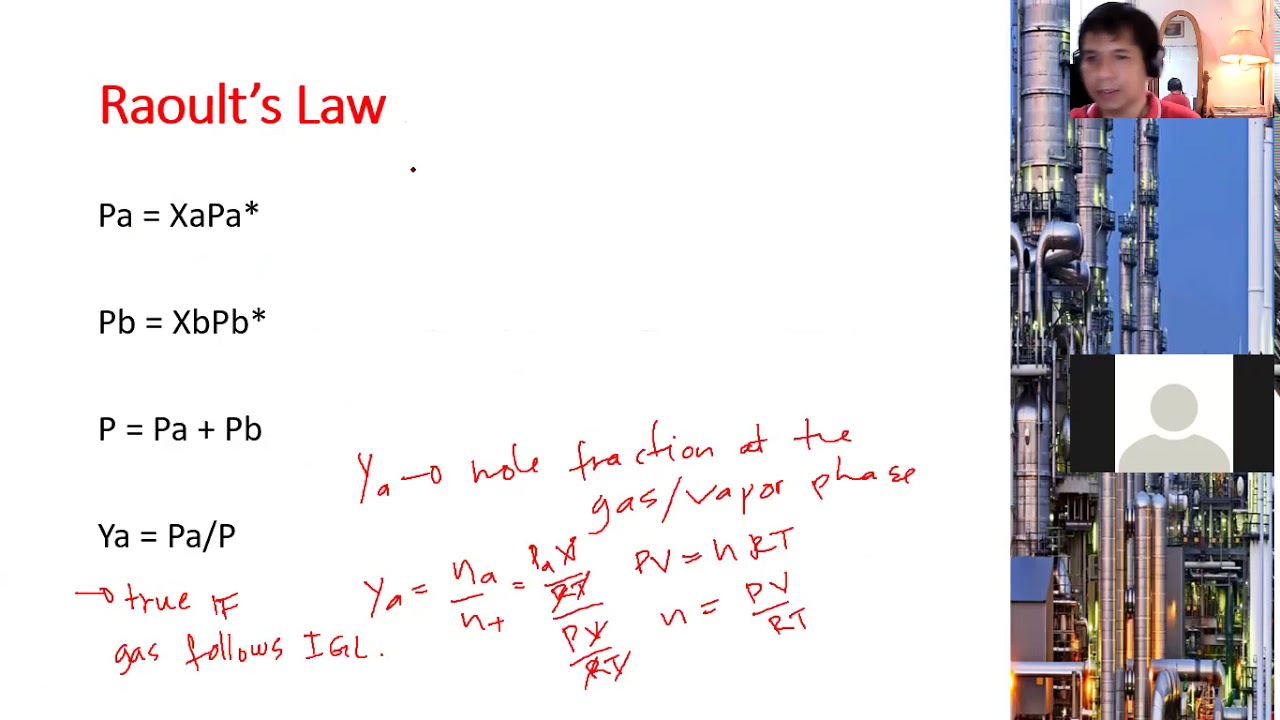 Raoult's Law
Pa = XaPa*
Pb = XbPb*
P = Pa + Pb
Ya → mole fraction at the
gas/vapor phase
Ya = Pa/P
→ true IF
gas follows IGL.
Ya = na/nt = (PaV/RT)/(PV/RT)
PV = nRT
n = PV/RT